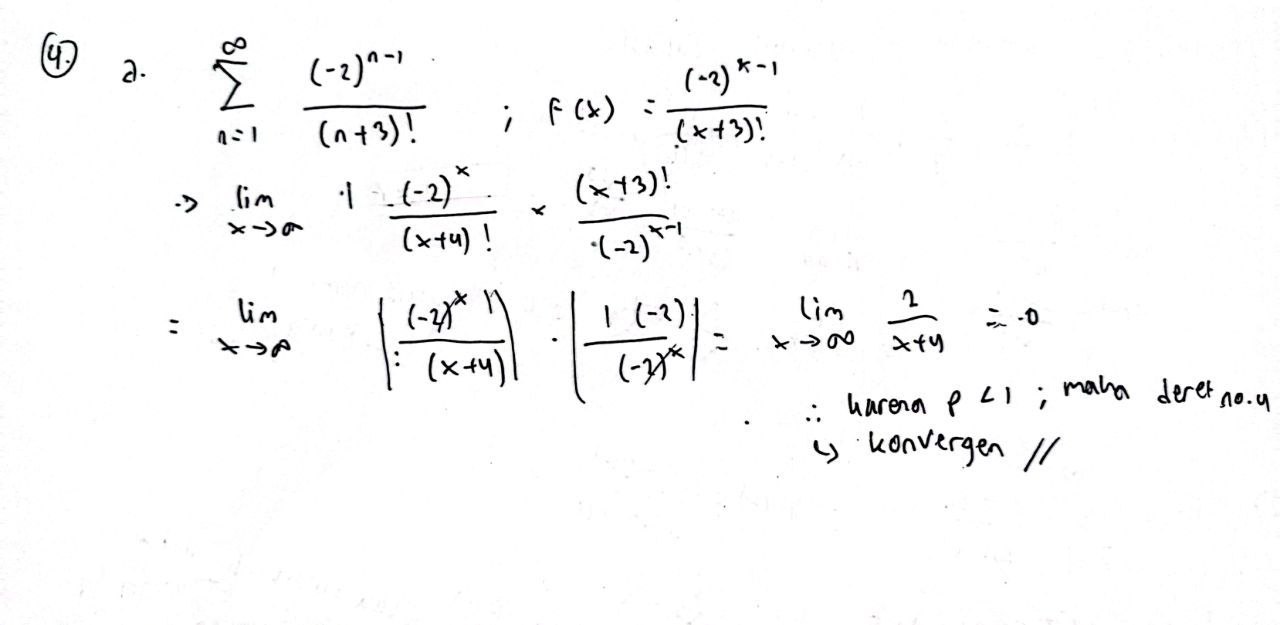 4. a. ∑_{n=1}^{∞} (-2)^{n-1} / (n+3)! ; F(x) = (-2)^{x-1} / (x+3)!
-> lim_{x→∞} | (-2)^x / (x+4)! × (x+3)! / (-2)^{x-1}
= lim_{x→∞} | (-2)^x 1 / (x+4) | · | 1 (-2) / (-2)^x | = lim_{x→∞} 2 / x+4 = 0
∴ karena ρ < 1 ; maka deret no.4
↳ konvergen //